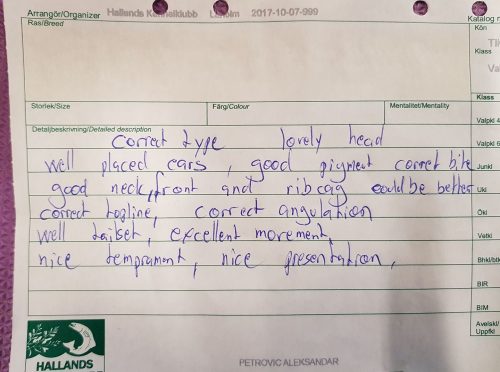 Arrangör/Organizer Hallands Kennelklubb Laholm 2017-10-07-999 Katalog n
Ras/Breed Kön
TI
Klass
Va
Klass
Storlek/Size Färg/Colour Mentalitet/Mentality Valpkl 4
Detaljbeskrivning/Detailed description Valpkl 6
Correct type lovely head
well placed ears, good pigment correct bite Junkl
good neck, front and ribcag could be better Ukl
correct topline, correct angulation Ökl
well tailset, excellent movement, Vetkl
nice temprament, nice presentation, Bhkl/bkl
BIR
BIM
Avelskl/
Uppfkl
HALLANDS
PETROVIC ALEKSANDAR